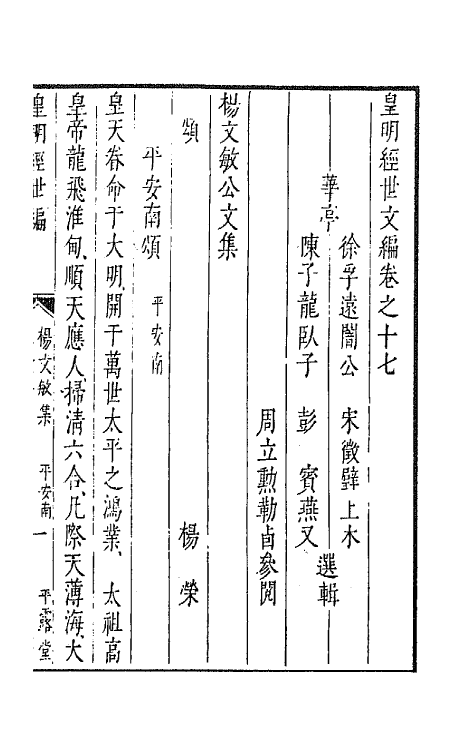 皇明經世文編卷之十七
徐孚遠闇公　宋徵璧上木
華亭　選輯
陳子龍臥子　彭　賓燕又
周立勲勒卣參閱
楊文敏公文集
頌　楊　榮
平安南頌　平安南
皇天眷命于大明、開千萬世太平之鴻業、　太祖高
皇帝龍飛淮甸、順天應人、掃清六合、凡際天薄海、大
皇明經世編　楊文敏集　平安南　一　平露堂